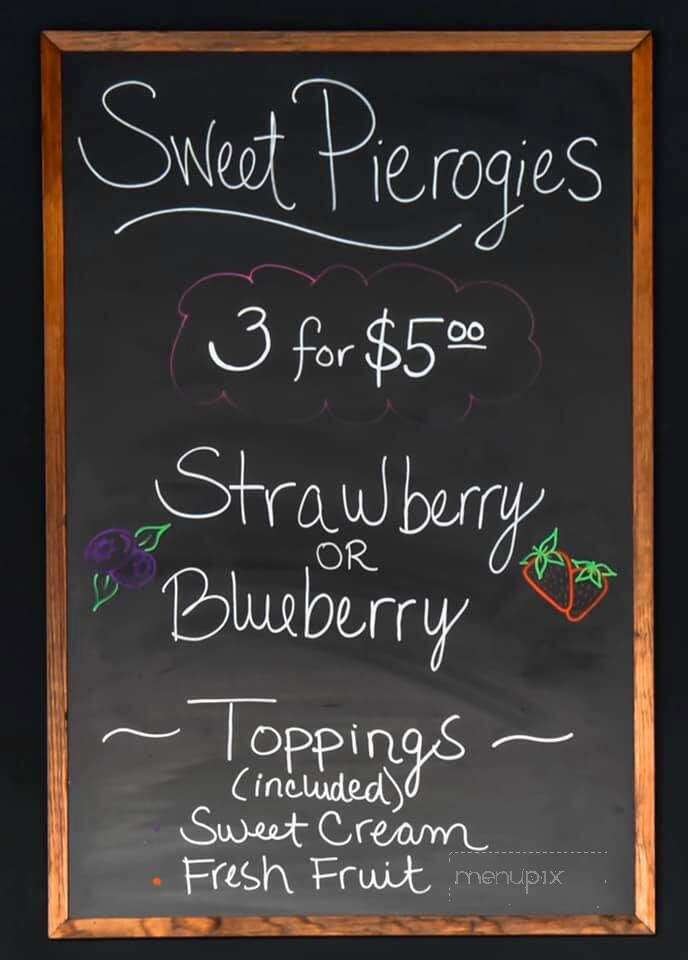 Sweet Pierogies
3 for $5.00
Strawberry
OR
Blueberry
~ Toppings ~
(included)
Sweet Cream
Fresh Fruit
menupix